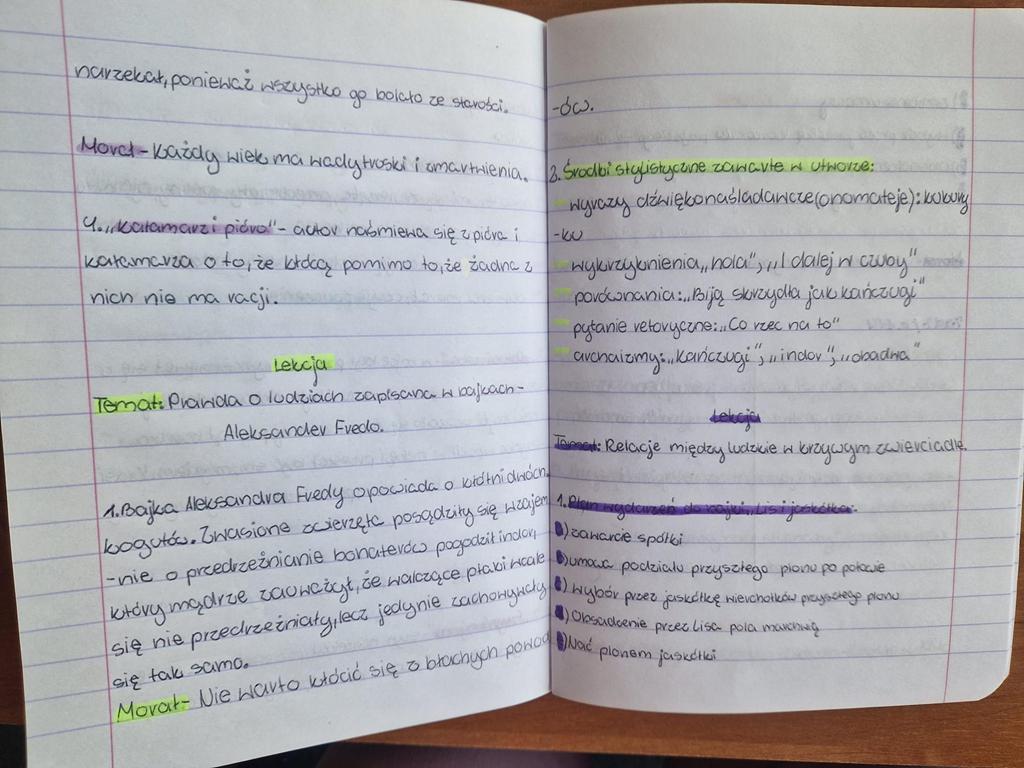 narzekał, ponieważ wszystko go bolało ze starości.
Morał - Każdy wiek ma wady troski i zmartwienia.
4. „Kałamarz i pióro" - autor naśmiewa się z pióra i
kałamarza o to, że kłócą pomimo to, że żadna z
nich nie ma racji.
Lekcja
Temat: Prawda o ludziach zapisana w bajkach -
Aleksander Fredo.
1. Bajka Aleksandra Fredy opowiada o kłótni dwóch
kogutów. Zwasione zwierzęta posądziły się wzajem
-nie o przedrzeźnianie bohaterów pogodził indor,
który mądrze zauważył, że walczące ptaki wcale
się nie przedrzeźniały, lecz jedynie zachowywały
się tak samo.
Morał - Nie warto kłócić się z błachych powod
-ów.
2. Środki stylistyczne zawarte w utworze:
- wyrazy dźwiękonaśladawcze (onomateje): kukury
-ku
- wykrzyknienia „hola"; „I dalej w czuby"
- porównania: „Biją skrzydła jak kańczugi"
- pytanie retoryczne: „Co rzec na to"
- archaizmy: „kańczugi"; „indor"; „obadwa"
Lekcja
Temat: Relacje między ludzkie w krzywym zwierciadle.
1. Plan wydarzeń do bajki „Lis i jaskółka".
) zawarcie spółki
) umowa podziału przyszłego plonu po połowie
) wybór przez jaskółkę wierzchołków przyszłego plonu
) Obsadzenie przez Lisa pola marchwią
) Nać plonem jaskółki